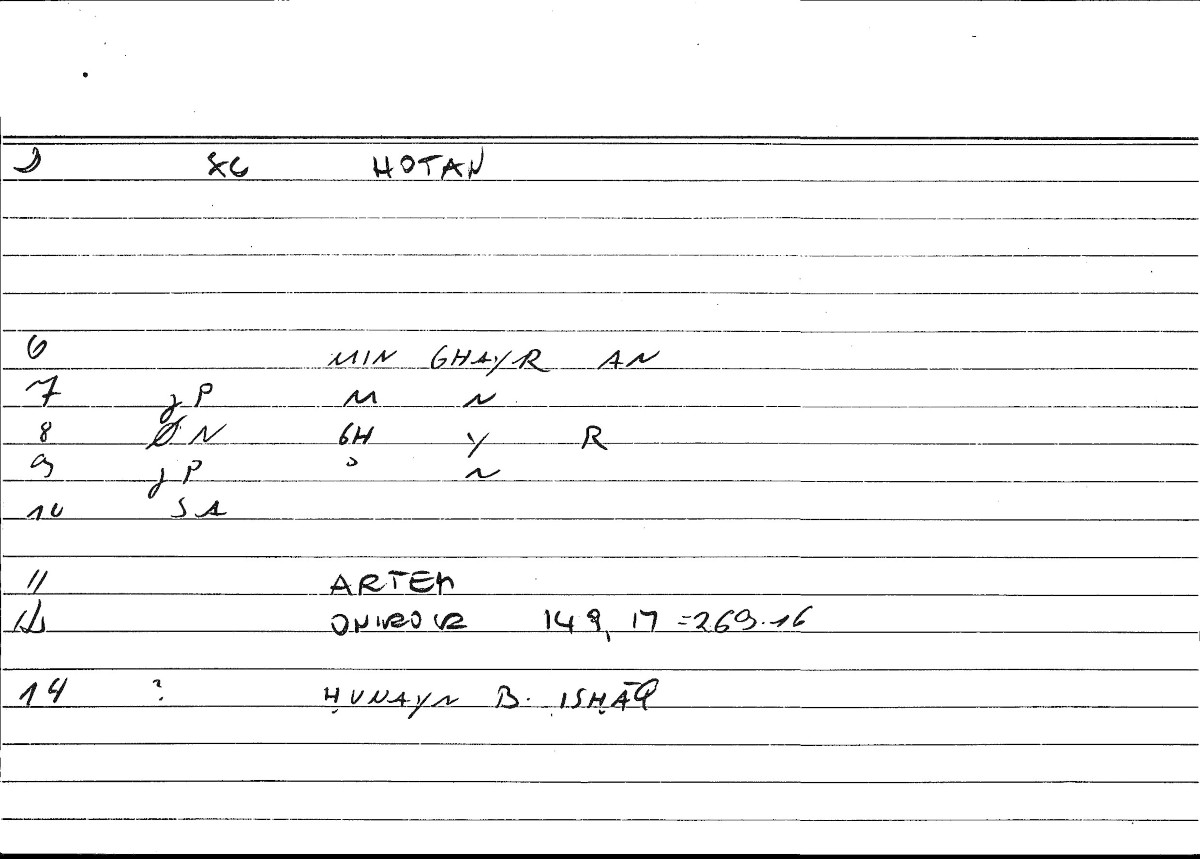 HOTAN
6 MIN GHAYR AN
7 gP M N
8 ØN GH Y R
9 gP N
10 SA
11 ARTEM
ONIROCR 148, 17 = 269.16
14 ? ḤUNAYN B. ISḤĀQ